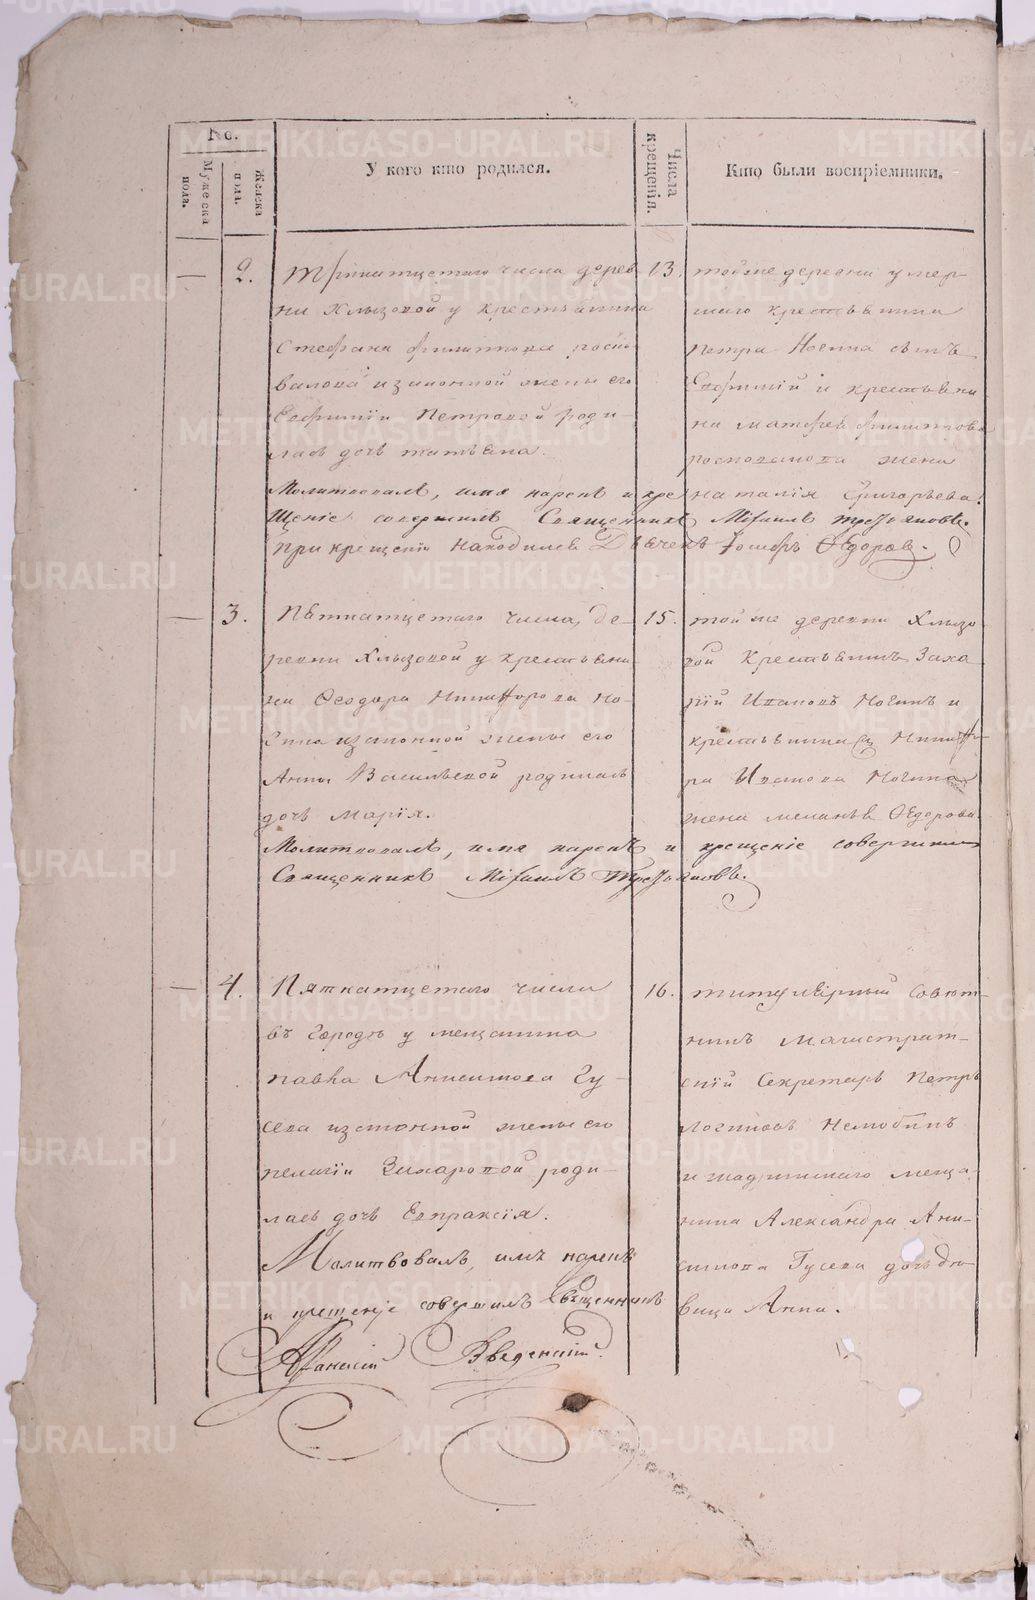 No.
Мужеска пола.
Женска пола.
У кого кто родился.
Числа крещенія.
Кто были воспріемники.
— 2. Тринатцетаго числа дерев
ни Хлызовой у крестьянина
Стефана Филиппова
изаконной жены его
Евфиміи Петровой роди-
лась дочь татьяна.
Молитвовалъ, имя нарекъ и кре
щеніе совершилъ Священникъ Михаилъ Третьяковъ.
При крещеніи находился Дьячекъ Іосифъ Ѳедоровъ.
13. тойже деревни умер-
шаго крестьянина
Петра Ногина сынъ
и крестьяни
на Матфея Филиппова
жена
наталія Григорьева.
— 3. Пятнатцетаго числа, де-
ревни Хлызовой у крестьяни
на Ѳеодора Никифорова Но-
гина иззаконной жены его
Анны Васильевой родилась
дочь Марія.
Молитвовалъ, имя нарекъ и крещеніе совершилъ
Священникъ Михаилъ Третьяковъ.
15. той же деревни Хлызо
вой крестьянинъ Заха
рій Ивановъ Ногинъ и
крестьянина Никифо
ра Иванова Ногина
жена меланья Ѳедорова.
— 4. Пятнатцетаго числа
въ городѣ у мещанина
павла Анисимова Гу-
сева иззаконной жены его
пелагіи Захаровой роди-
лась дочь Евпраксія.
Молитвовалъ, имя нарекъ
и крещеніе совершилъ Священникъ
Афанасій Введенскій.
16. титулярный Совѣт-
никъ Магистрат-
скій Секретарь Петръ
Логиновъ
и шадринскаго меща
нина Александра Ани-
симова Гусева дочь дѣ
вица Анна.
METRIKI.GASO-URAL.RU